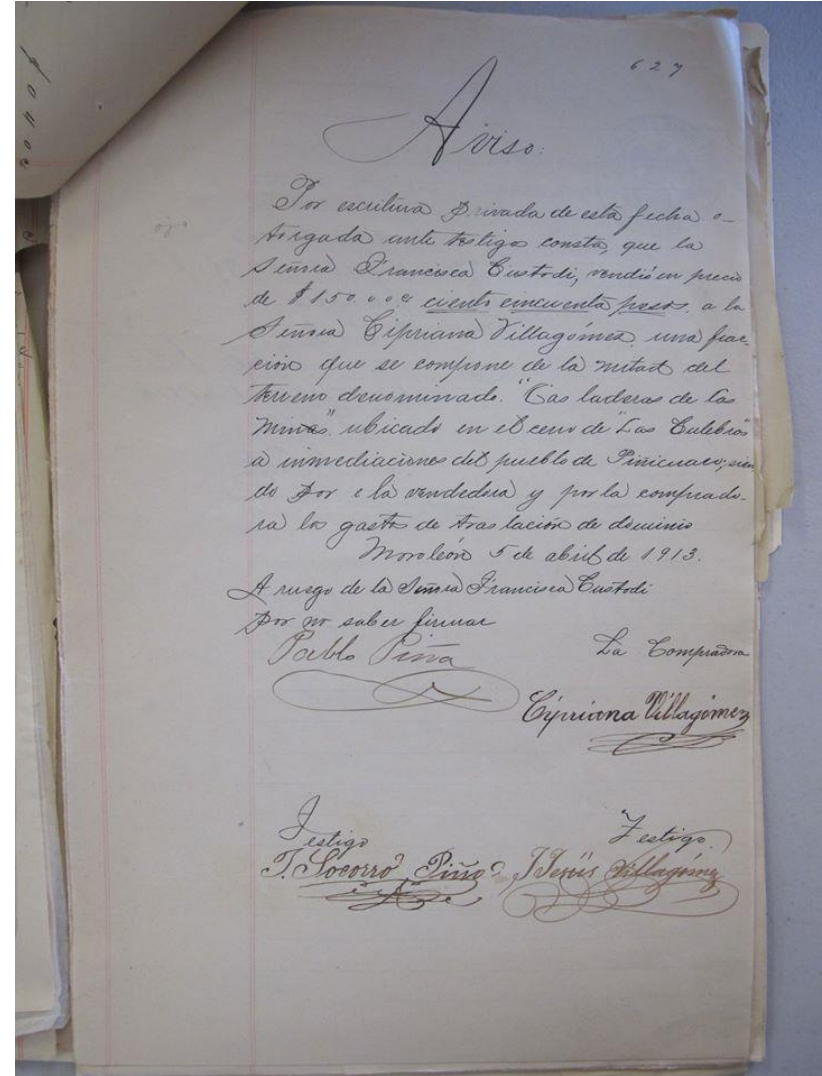 627
Aviso:
Por escritura privada de esta fecha o-
torgada ante testigos consta, que la
Señora Francisca Custodi, vendió en precio
de $150.00 ciento cincuenta pesos. a la
Señora Cipriana Villagómez una frac-
ción que se compone de la mitad del
terreno denominado. "Las laderas de las
minas" ubicado en el cerro de "Las Culebras"
a inmediaciones del pueblo de Piñicuaro; sien
do por la vendedora y por la comprado-
ra los gastos de traslación de dominio
Moroleón 5 de abril de 1913.
A ruego de la Señora Francisca Custodi
por no saber firmar
Pablo Piña
La Compradora
Cipriana Villagómez
Testigo
Testigo.
J. Socorro Piña
J Jesús Villagómez